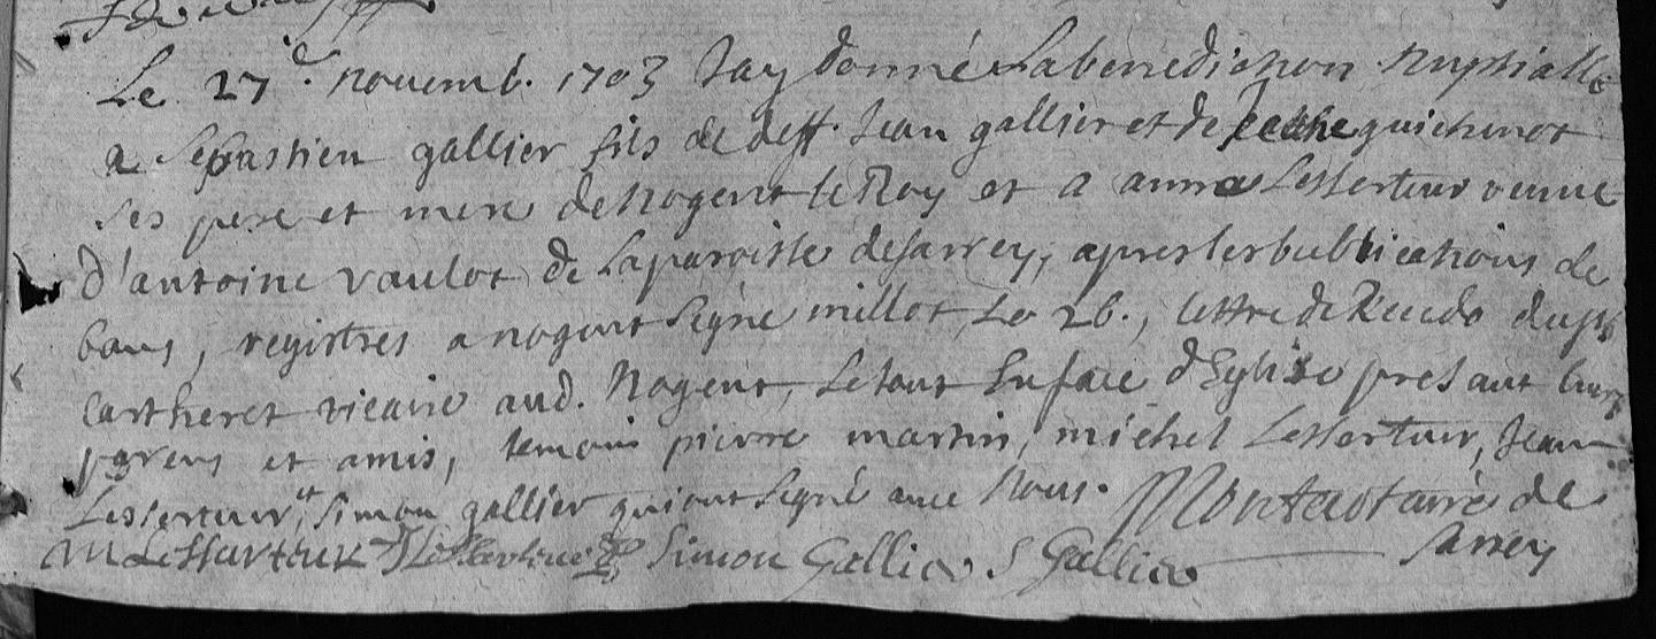 Le 27e. novemb. 1703 Jay donné La benediction Nuptialle
a Sebastien gallier fils de deff. Jean gallier et de guichenot
ses pere et mere de Nogent le Roy et a anne Lesserteur veuve
d'antoine vaulot de La paroisse de Sarrey, apres les publications de
bans, registres a nogent Signé millot, Le 26., lettre de Recedo du Sr
Cartheret vicaire aud. Nogent, Le tout En face d'Eglise presant leurs
parens et amis, temoins pierre martin, michel Lesserteur, Jean
Lesserteur, et Simon gallier qui ont Signé avec Nous. de
M Lessarteur J Simon Gallier S Gallier Sarrey